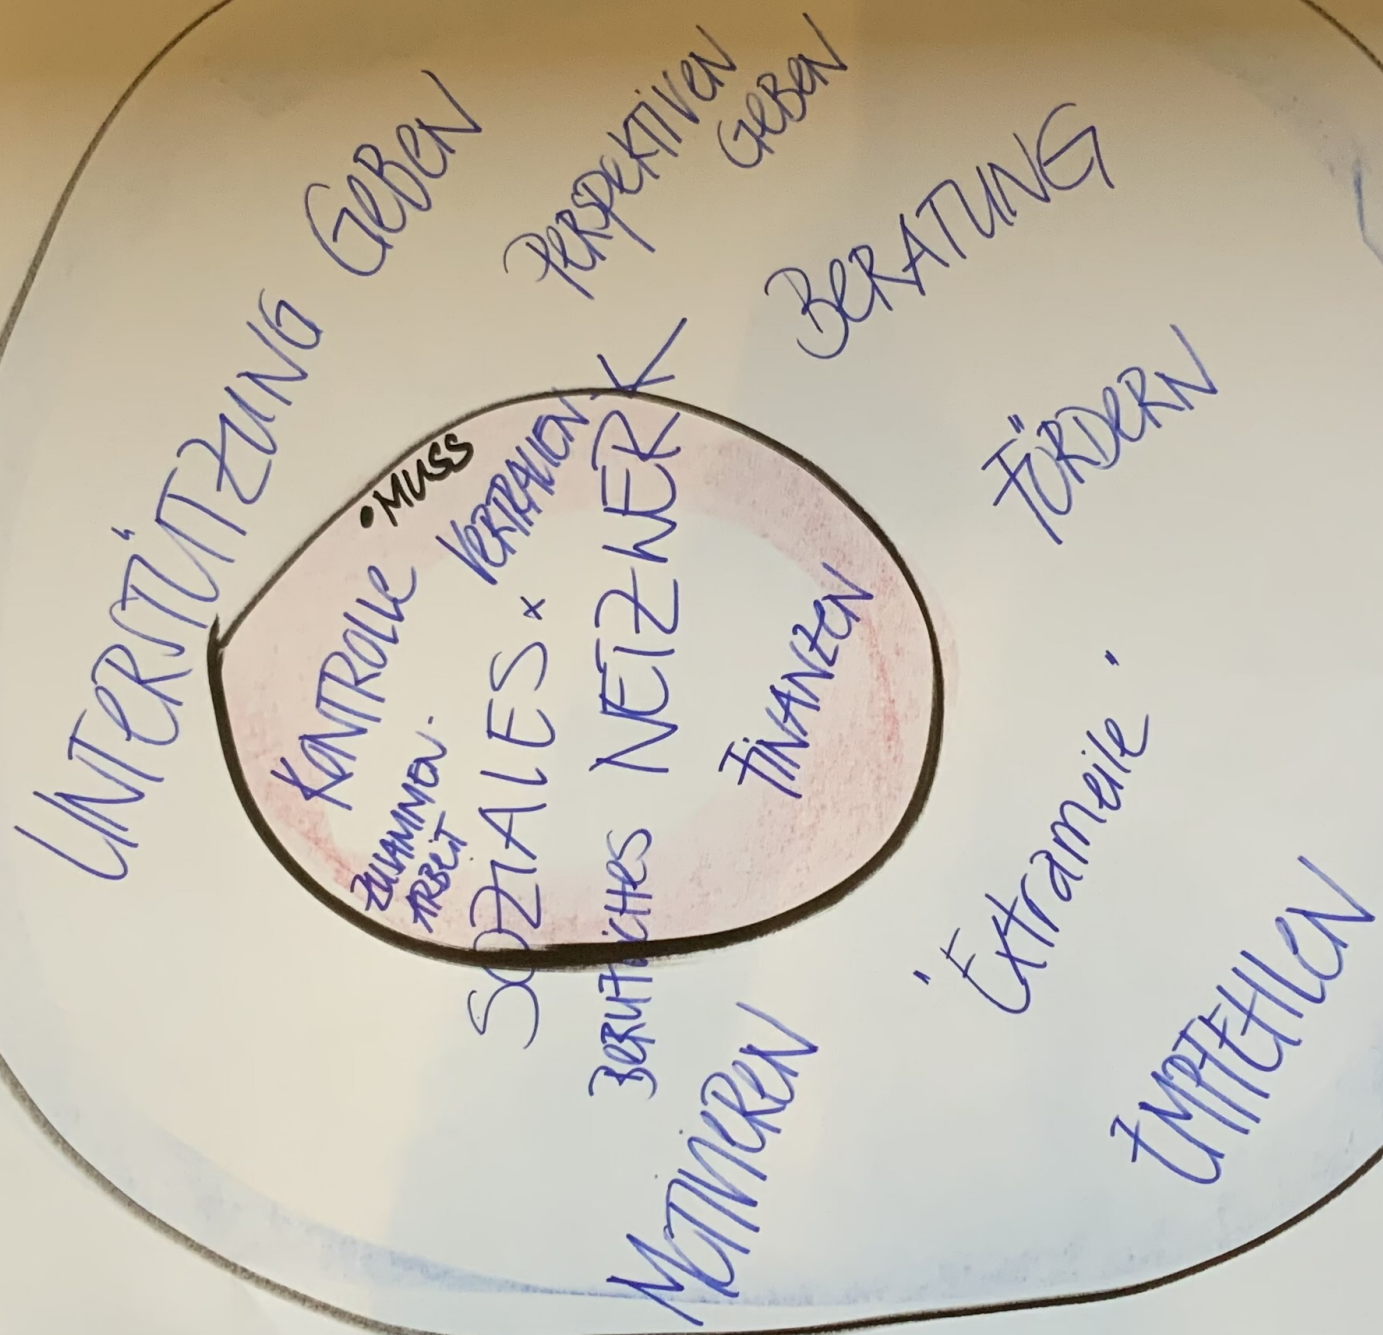 UNTERSTÜTZUNG GEBEN
PERSPEKTIVEN
GEBEN
BERATUNG
FÖRDERN
"Extrameile"
EMPFEHLEN
MOTIVIEREN
• MUSS
KONTROLLE
VERTRAUEN
ZUSAMMEN-
ARBEIT
SOZIALES
BERUFLICHES NETZWERK
FINANZEN